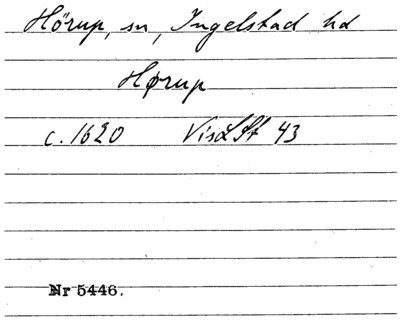 Hörup, sn, Ingelstad hd
Hørup
c. 1620 VisLSt 43
Nr 5446.